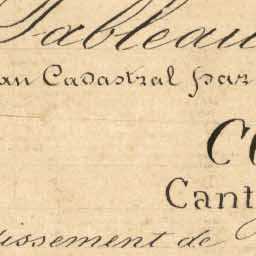 Tableau
an Cadastral par
Co
Cant
dissement de